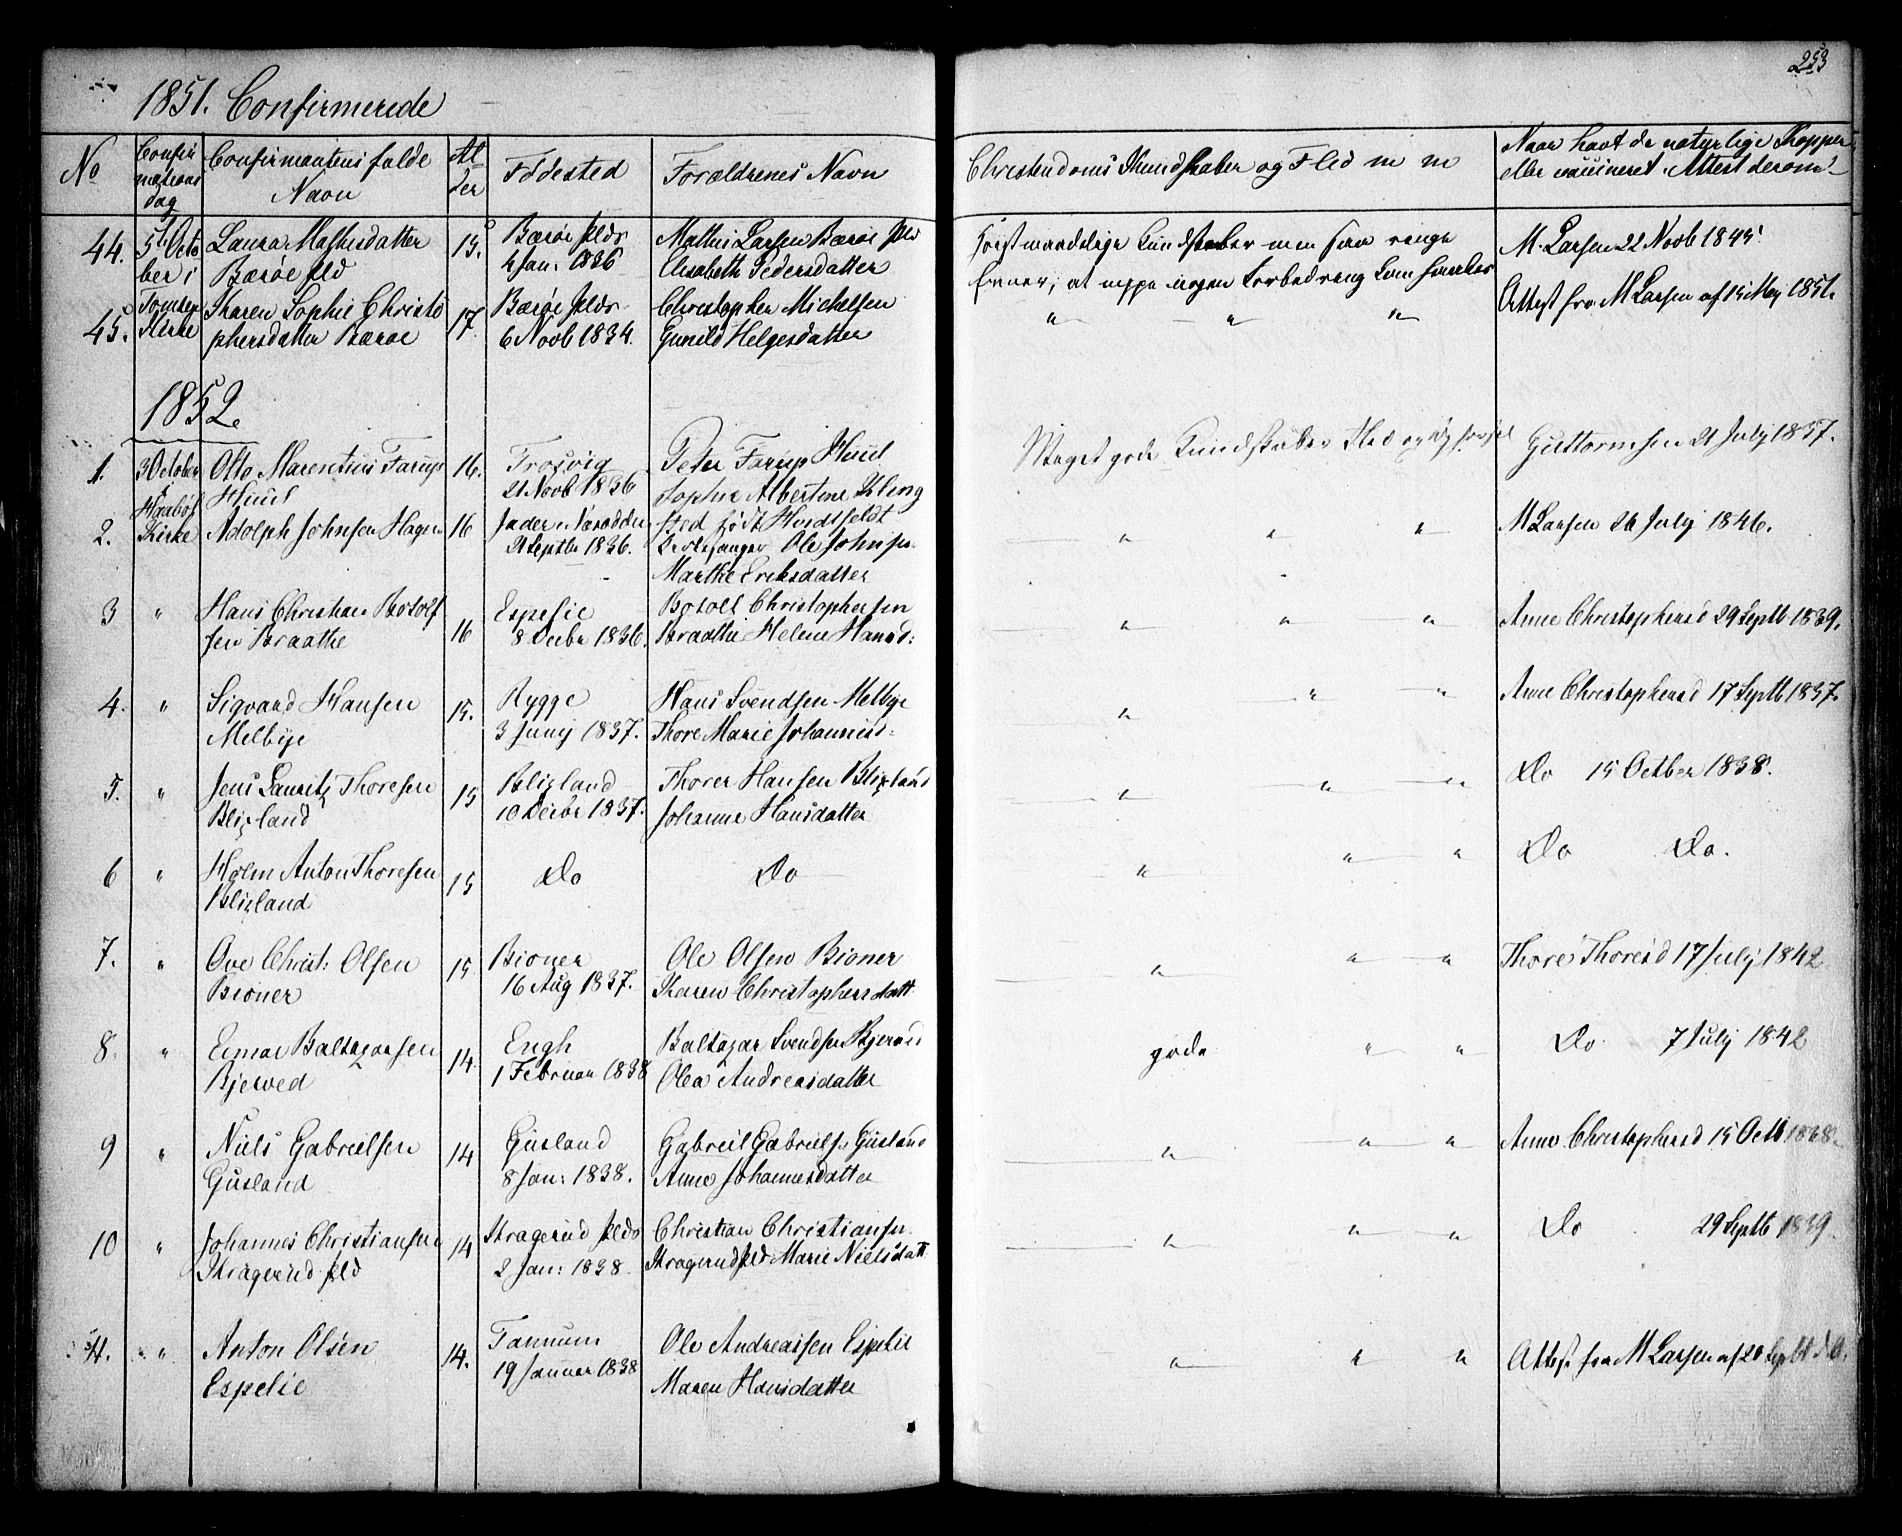 253
1851. Confirmerede
No
Confir
mations
dag
Confirmantens fulde
Navn
Al
der
Fødested
Forældrenes Navn
Christendoms Kundskaber og Flid m m
Naar havt de natyrlige Kopper
eller vaccineret. Attest derom
44.
5te Octo
ber i
Tomter
Kirke
Laura Mathisdatter
Barøe pld
15.
Barøe plds
4 Jan: 1836
Mathis Larsen Barøe pld
Elisabeth Pedersdatter
maadelige Kundskaber men saa ringe
Evner, at neppe nogen Forbedring kan
M. Larsen 22 Novb 1845
45.
Karen Sophie Christo
phersdatter Barøe
17
Barøe plds
6 Novb 1834.
Christopher Michelsen
Gunild Helgesdatter
" " "
Attest fra M Larsen af 15 May 1851.
1852.
1.
3 October
Kirke
Otto Marentius Farup
Huul
16.
Trosvig
21 Novb 1836
Peter Farup Huul
Sophie Albertine Kling
sted født Hvidtfeldt
Meget gode Kundskaber Flid og
Guttormsen 21 July 1837.
2.
Adolph Johnsen Hagen
16
Næsodden
21 Septbr 1836.
Ole Johnsen
Marthe Eriksdatter
" " "
M Larsen 26 July 1846.
3
"
Hans Christian Botolf
sen Braathe
16
Espelie
8 Decbr 1836.
Botolf Christophersen
Braathe Helene Hansd:
" " "
Anne Christophersd 29 Septb 1839.
4.
"
Sigvard Hansen
Melbye
15.
Rygge
3 Junj 1837.
Hans Svendsen Melbye
Thore Marie Johannesd=
" " "
Anne Christophersd 17 Septb 1837.
5.
"
Jens Lauritz Thoresen
Blixland
15
Blixland
10 Decbr 1837.
Thorer Hansen Blixland
Johanne Hansdatter
" " "
Do 15 Octber 1838.
6
"
Holm Anton Thoresen
Blixland
15
Do
Do
" " "
Do Do.
7.
"
Ove Christ: Olsen
Bioner
15
Bioner
16 Aug 1837.
Ole Olsen Bioner
Karen Christophersdatt
" " "
Thore Thoresd 17 July 1842
8.
"
Einar Baltazarsen
Bjerved
14.
Engh
1 Februar 1838
Baltazar Svendsen
Olea Andreasdatter
gode " "
Do 7 July 1842
9
"
Niels Gabrielsen
Gusland
14
Gusland
8 Jan: 1838.
Gabriel Gabrielsn Gusland
Anne Johannesdatter
" " "
Anne Christophersd 15 Octb 1838.
10
"
Johannes Christiansen
Kragerud pld
14
Kragerud plds
2 Jan: 1838.
Christian Christiansn.
Kragerudpld Marie Nielsdatt
" " "
Do 29 Septb 1839.
11.
"
Anton Olsen
Espelie
14.
Tannum
19 Januar 1838
Ole Andreassen Espelie
Maren Hansdatter
" " "
Attest fra M Larsen af 20 Septbr d. A.